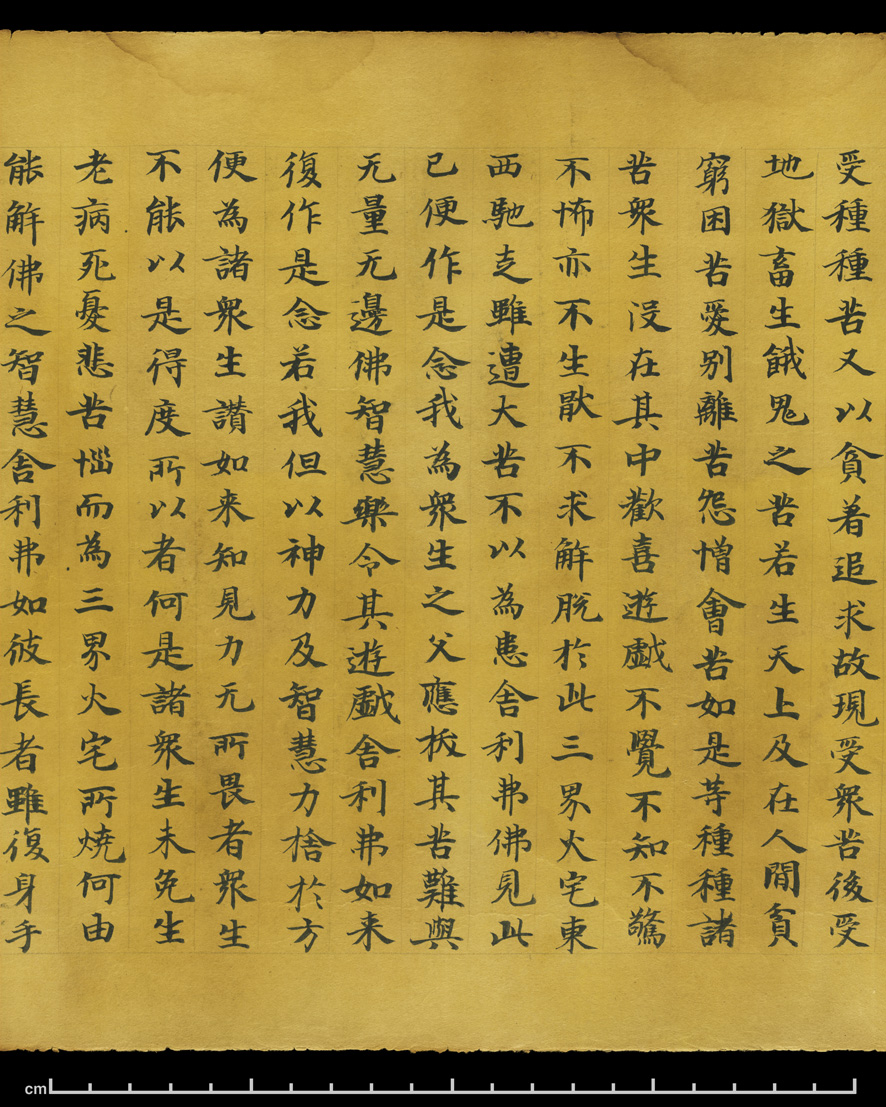 受種種苦又以貪着追求故現受衆苦後受
地獄畜生餓鬼之苦若生天上及在人間貧
窮困苦愛別離苦怨憎會苦如是等種種諸
苦衆生沒在其中歡喜遊戲不覺不知不驚
不怖亦不生猒不求解脫於此三界火宅東
西馳走雖遭大苦不以為患舍利弗佛見此
已便作是念我為衆生之父應拔其苦難與
无量无邊佛智慧樂令其遊戲舍利弗如来
復作是念若我但以神力及智慧力捨於方
便為諸衆生讚如来知見力无所畏者衆生
不能以是得度所以者何是諸衆生未免生
老病死憂悲苦惱而為三界火宅所燒何由
能解佛之智慧舍利弗如彼長者雖復身手
cm